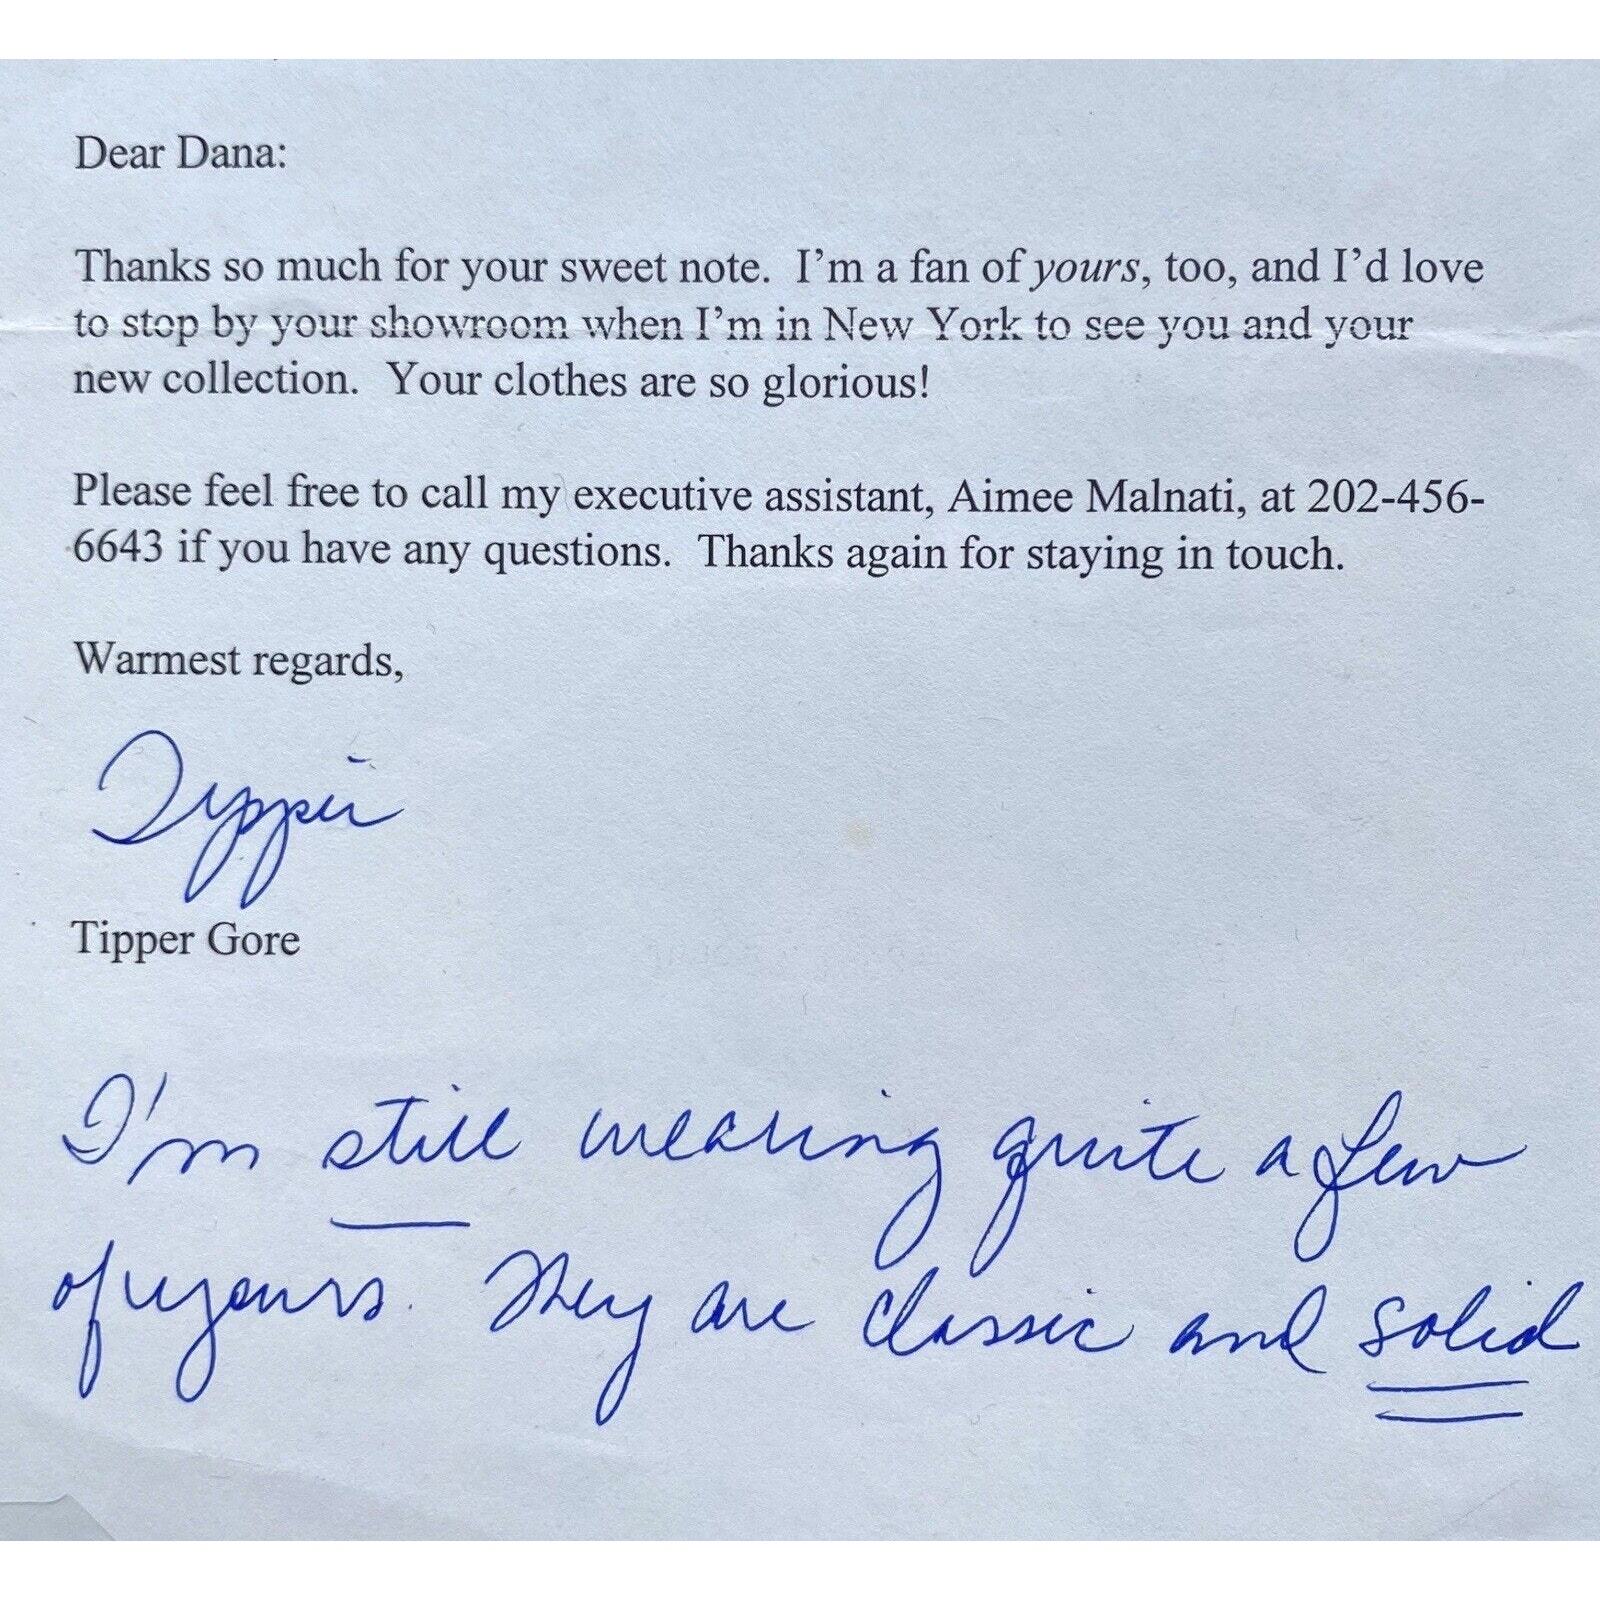 Dear Dana:
Thanks so much for your sweet note. I'm a fan of yours, too, and I'd love
to stop by your showroom when I'm in New York to see you and your
new collection. Your clothes are so glorious!
Please feel free to call my executive assistant, Aimee Malnati, at 202-456-
6643 if you have any questions. Thanks again for staying in touch.
Warmest regards,
Tipper
Tipper Gore
I'm still wearing quite a few
of yours. They are classic and solid